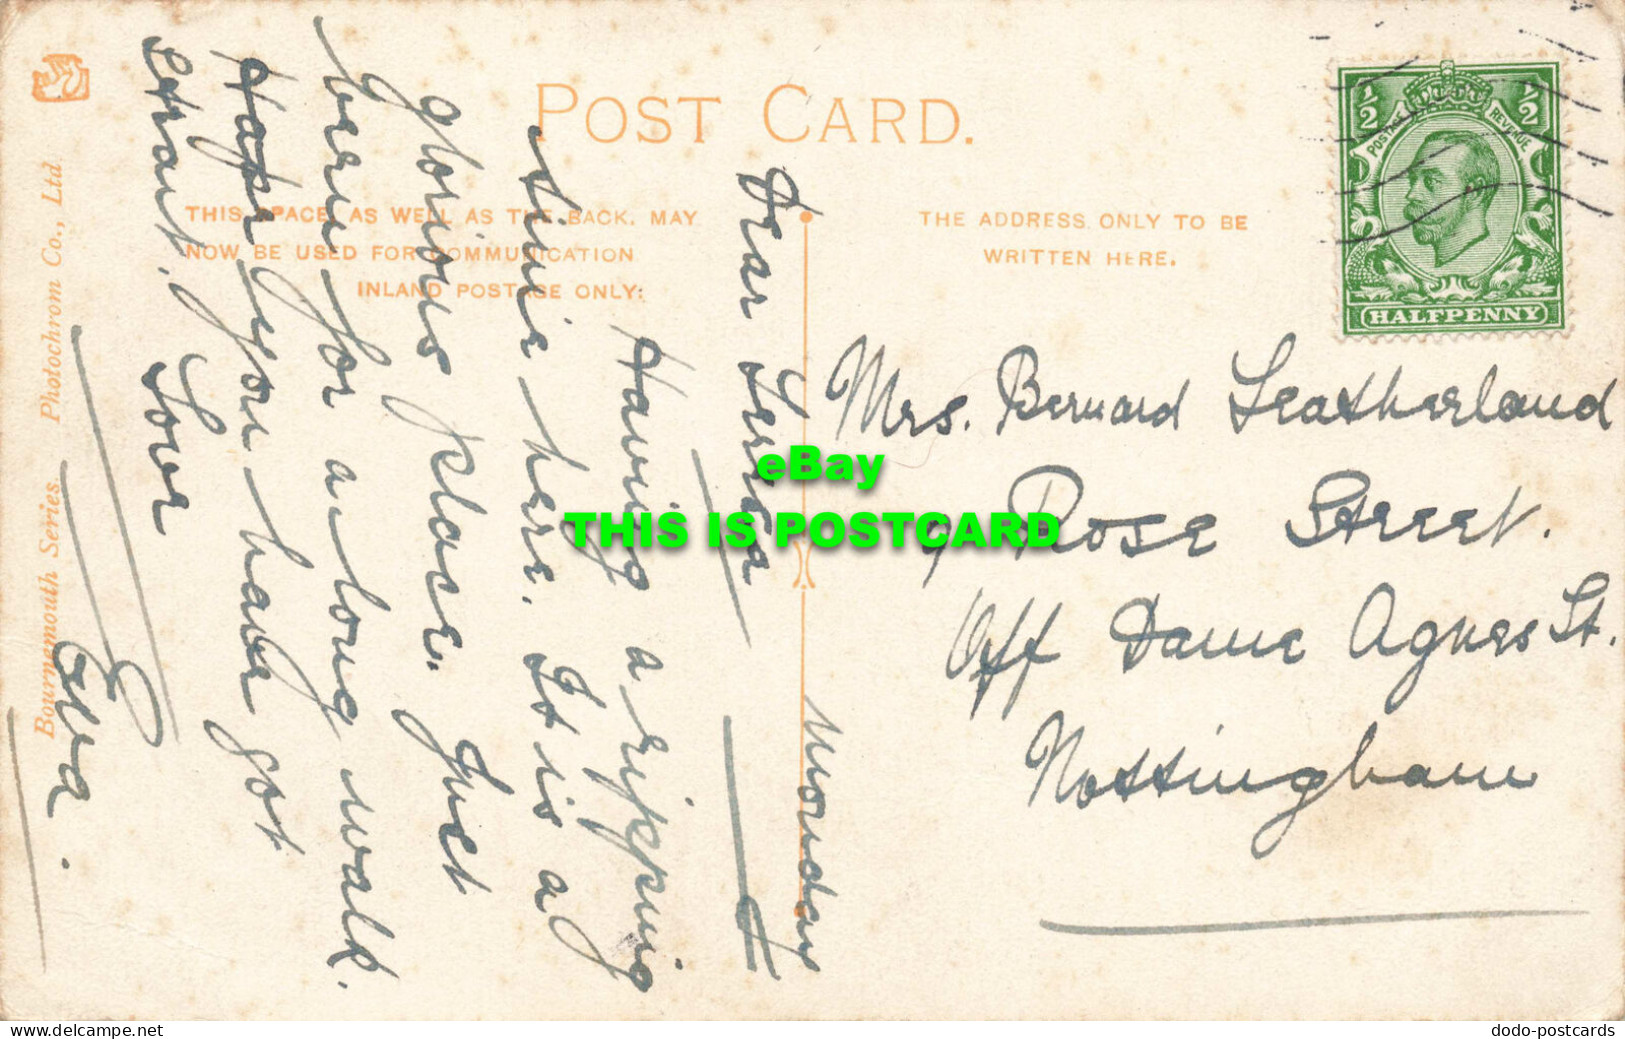 POST CARD.
THIS SPACE, AS WELL AS THE BACK, MAY
NOW BE USED FOR COMMUNICATION
INLAND POSTAGE ONLY:
THE ADDRESS ONLY TO BE
WRITTEN HERE.
½ ½
POSTAGE REVENUE
HALFPENNY
Bournemouth Series. Photochrom Co., Ltd
Monday
Dear
Having a ripping
time here. It is a
glorious place. Just
been for a long walk.
Hope you have got
strait.
Love
Eva.
Mrs. Bernard Leatherland
9 Rose Street.
Off Dame Agnes St.
Nottingham
eBay
THIS IS POSTCARD
www.delcampe.net
dodo-postcards